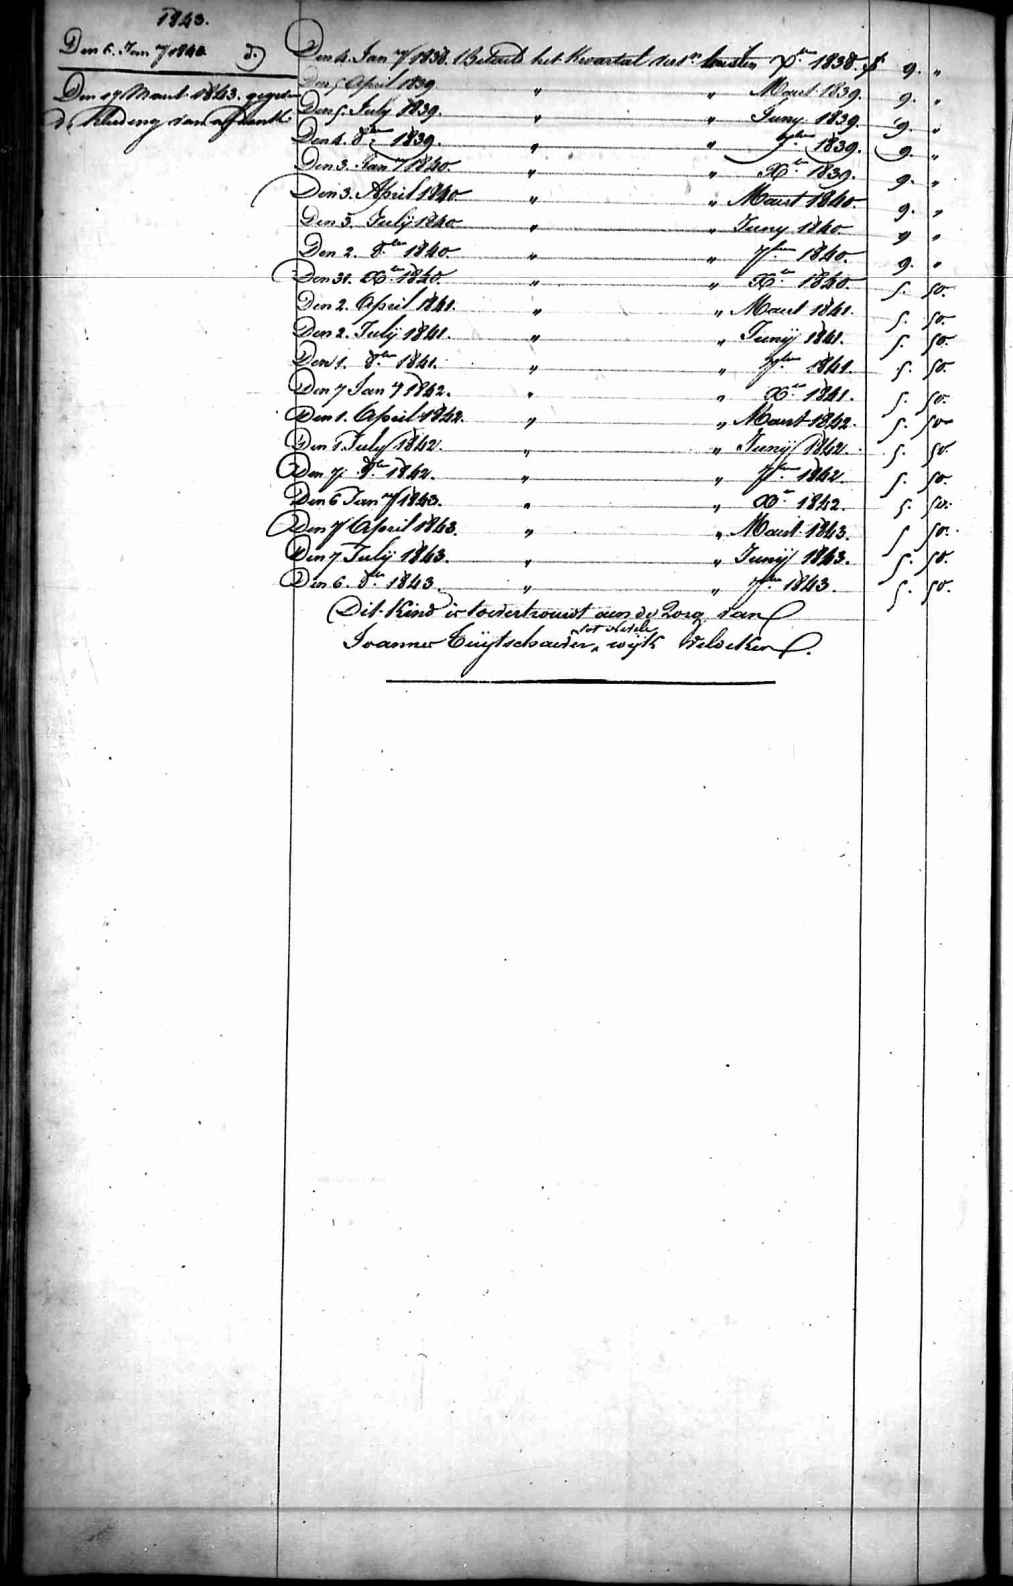 1843.
Den 6. Jan 7 1843 d.)
Den 17 Maart 1843. gegeven
de kleding van afkante
Den 4. Jan 7 1838. Betaald het Kwartaal verst Xber 1838. f 9. "
Den 5 April 1839 " " Maart 1839. 9. "
Den 5 July 1839. " " Juny 1839. 9. "
Den 4. 8ber 1839. " " 7ber 1839. 9. "
Den 3. Jan 7 1840. " " Xber 1839. 9. "
Den 3. April 1840 " " Maart 1840. 9. "
Den 3. July 1840 " " Juny 1840 9 "
Den 2. 8ber 1840. " " 7ber 1840. 9. "
Den 31. Xber 1840. " " Xber 1840. 5. 50.
Den 2. April 1841. " " Maart 1841. 5. 50.
Den 2. July 1841. " " Junij 1841. 5. 50
Den 1. 8ber 1841. " " 7ber 1841. 5. 50.
Den 7 Jan 7 1842. " " Xber 1841. 5. 50.
Den 1. April 1842. " " Maart 1842. 5. 50
Den 1 July 1842. " " Junij 1842. 5. 50.
Den 7. 8ber 1842. " " 7ber 1842. 5. 50.
Den 6 Jan 7 1843. " " Xber 1842. 5. 50.
Den 7 April 1843. " " Maart 1843. 5 50.
Den 7 July 1843. " " Junij 1843. 5. 50.
Den 6. 8ber 1843. " " 7ber 1843. 5. 50.
Dit Kind is toevertrouwt aan de Zorg van
Joannes Cuijtschaever, wijk